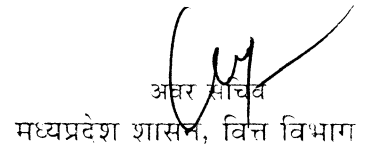 अवर सचिव
मध्यप्रदेश शासन, वित्त विभाग